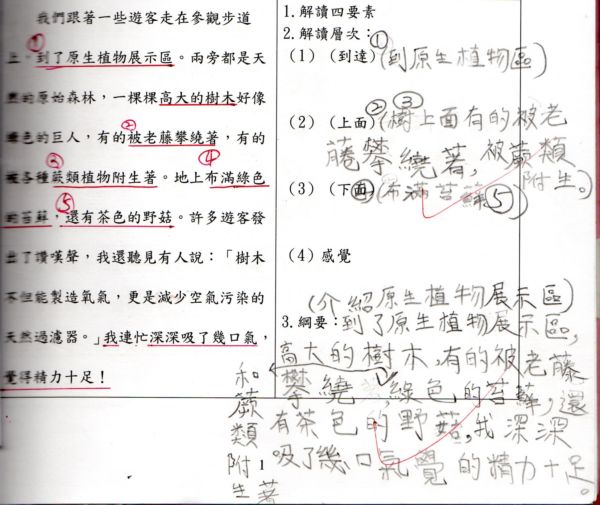 我們跟著一些遊客走在參觀步道
上。到了原生植物展示區。兩旁都是天
然的原始森林,一棵棵高大的樹木好像
綠色的巨人,有的被老藤攀繞著,有的
被各種蕨類植物附生著。地上布滿綠色
的苔蘚,還有茶色的野菇。許多遊客發
出了讚嘆聲,我還聽見有人說:「樹木
不但能製造氧氣,更是減少空氣污染的
天然過濾器。」我連忙深深吸了幾口氣,
覺得精力十足!
1.解讀四要素
2.解讀層次:①
(1)(到達)(到原生植物區)
(2)(上面)②③(樹上面有的被老
藤攀繞著,被蕨類
附生。)
(3)(下面)④(布滿苔蘚⑤)
(4)感覺
(介紹原生植物展示區)
3.綱要:到了原生植物展示區,
高大的樹木,有的被老藤
攀繞,綠色的苔蘚,還
有茶色的野菇,我深深
吸了幾口氣覺的精力十足。
和蕨類附生著
1